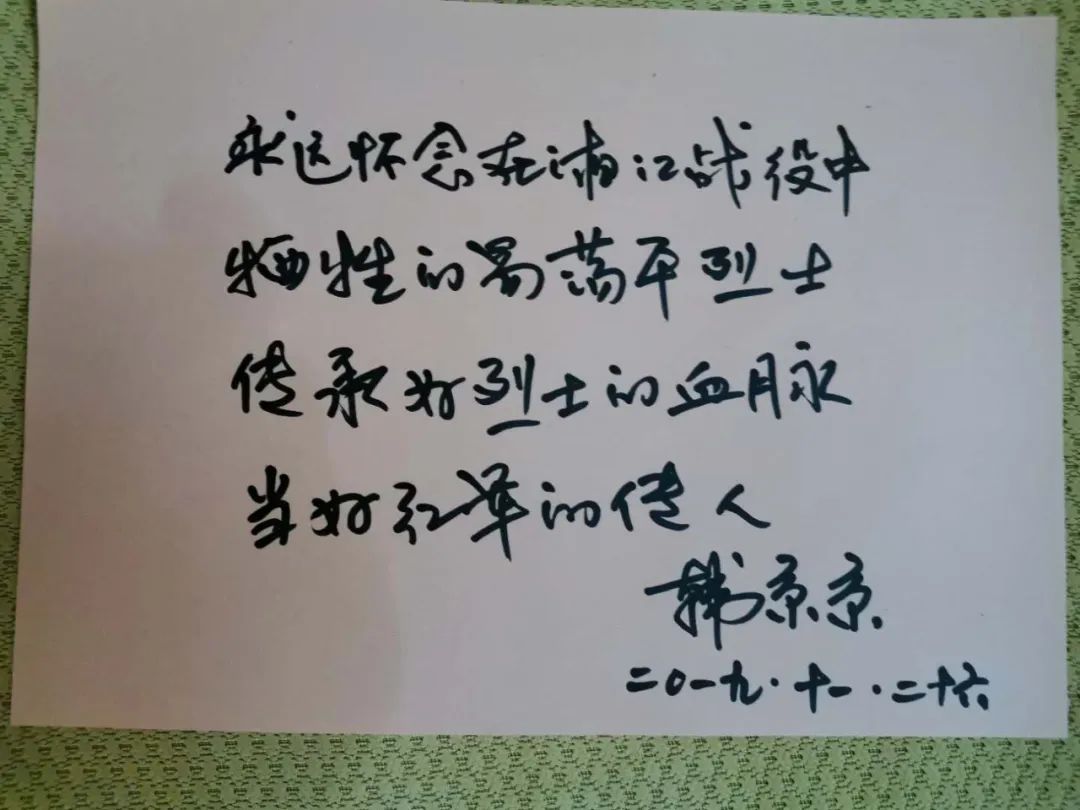 永远怀念在湘江战役中
牺牲的易荡平烈士
传承好烈士的血脉
当好红军的传人
韩京京
二〇一九.十一.二十六